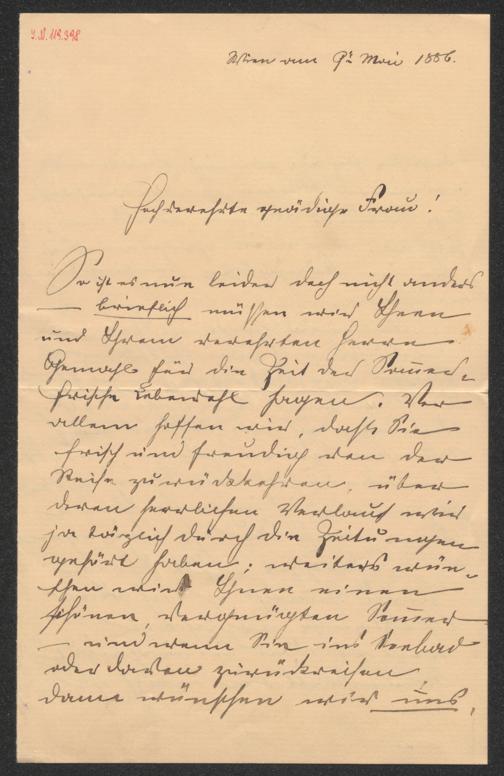 J.N. 119.398
Wien am 9t Mai 1886.
Hochverehrte gnädige Frau!
So ist es nun leider doch nicht anders
— brieflich müssen wir Ihnen
und Ihrem verehrten Herrn
Gemahl für die Zeit der Som̅er-
frische Lebewohl sagen. Vor
allem hoffen wir, daß Sie
frisch und freudig von der
Reise zurückkehren, über
deren herrlichen Verlauf wir
ja täglich durch die Zeitungen
gehört haben; weiters wün-
schen wir Ihnen einen
schönen, vergnügten Som̅er
— und wenn Sie ins Seebad
oder davon zurückreisen,
dann wünschen wir uns,